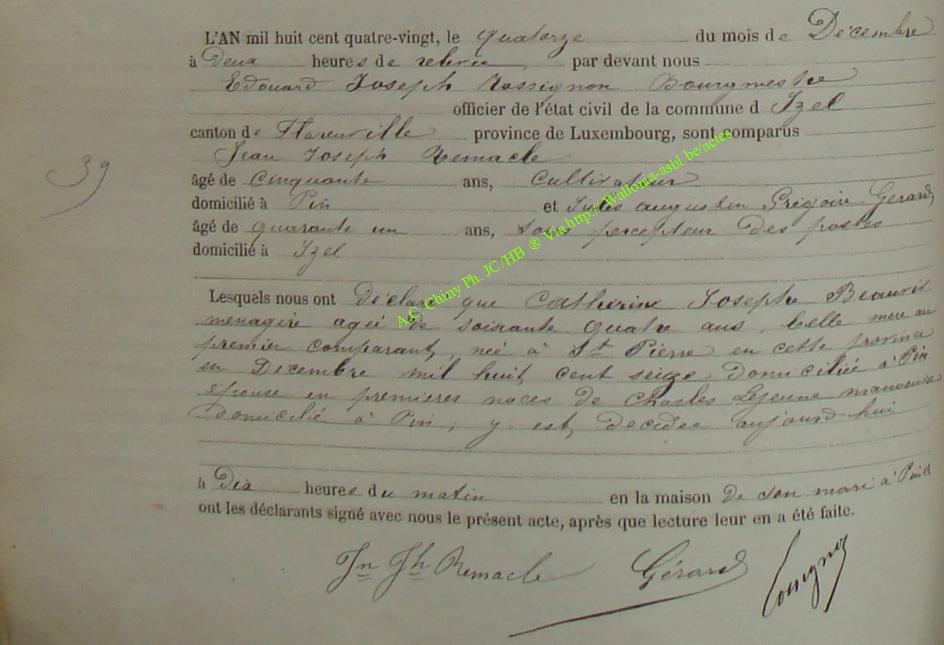 L'AN mil huit cent quatre-vingt, le quatorze du mois de Décembre
à Deux heures de relevée, par devant nous
Edouard Joseph Rossignon Bourgmestre
officier de l'état civil de la commune d Izel
canton de Florenville province de Luxembourg, sont comparus
Jean Joseph Remacle
39
âgé de Cinquante ans, Cultivateur
domicilié à Pin et Jules augustin Grégoire Gerard,
âgé de quarante un ans, sous percepteur des postes
domicilié à Izel
Lesquels nous ont Déclaré que Catherine Joseph Beauvir
menagère agée de soixante quatre ans, belle mere au
premier comparant, née à St Pierre en cette province
en Decembre mil huit cent seize domiciliée à Pin
epouse en premieres noces de Charles Lejeune manoeuvre
domicilié à Pin, y est, decedée aujourd'hui
à dix heures du matin en la maison de son mari à Pin et
ont les déclarants signé avec nous le présent acte, après que lecture leur en a été faite.
Jn Jh Remacle Gérard
A.C. Chiny Ph. JC/HB ® Via http://Wallonia-asbl.be/actes